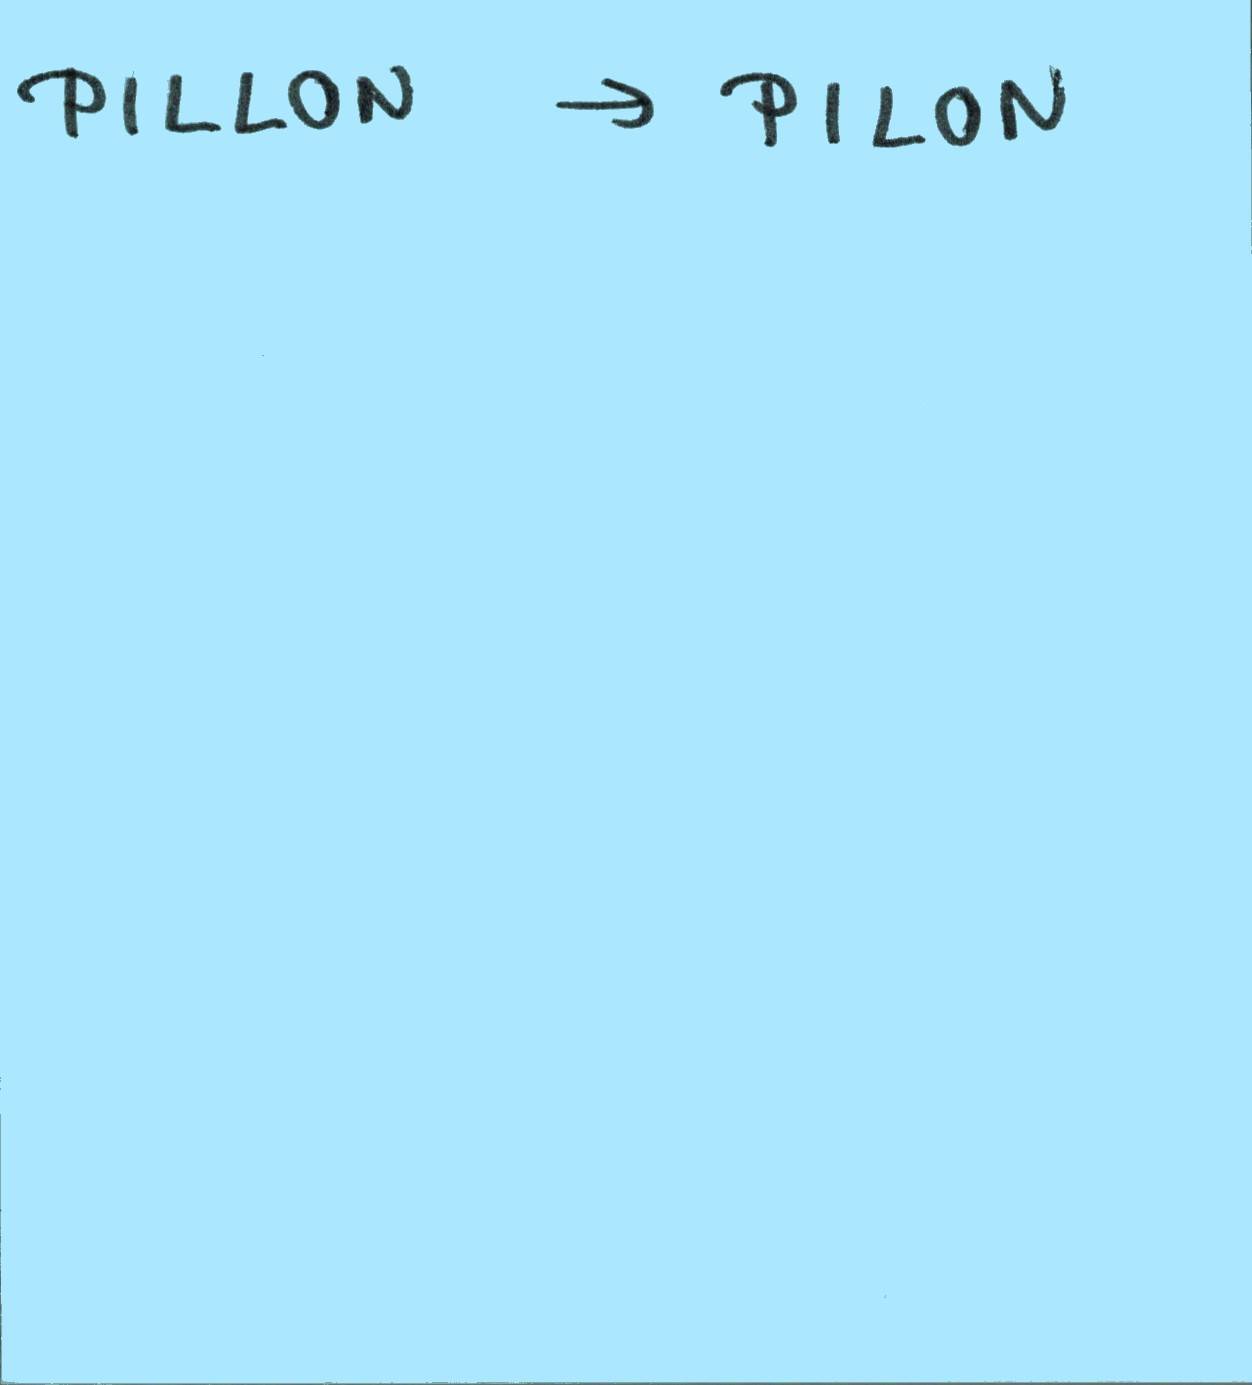 PILLON → PILON